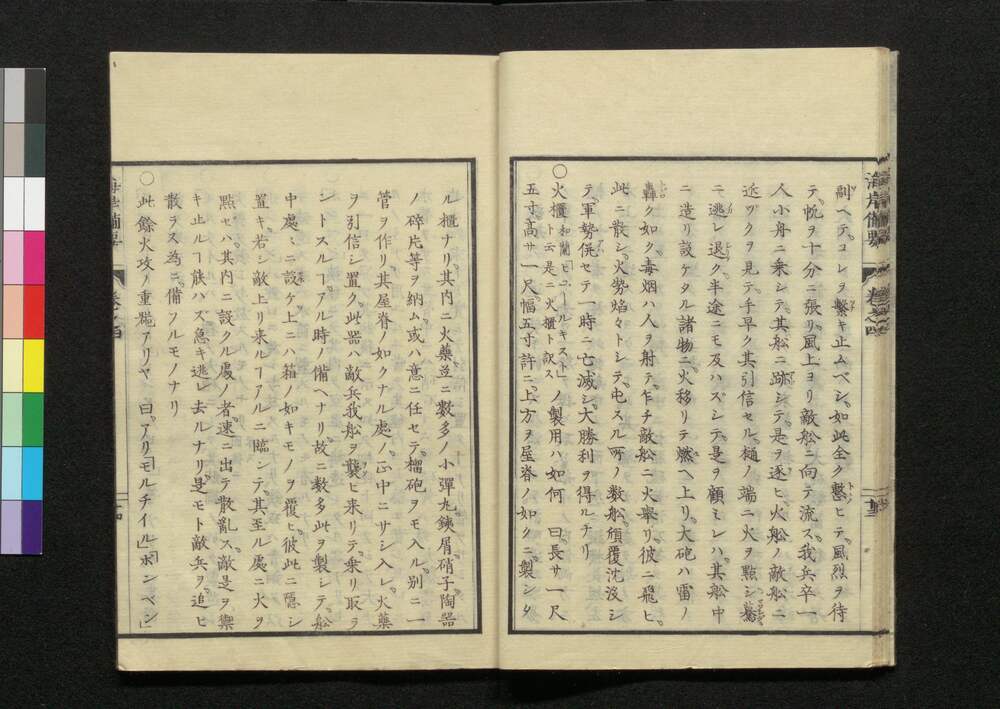 海岸備要 卷之四 十三
副ヘテ。コレヲ繫キ止ムベシ。如此全ク繫ヒテ。風烈ヲ待
テ。帆ヲ十分ニ張リ。風上ヨリ敵舩ニ向テ流ス。我兵卒一
人小舟ニ乗シテ。其舩ニ跡シテ。是ヲ逐ヒ。火舩ノ敵舩ニ
近ヅクヲ見テ。手早ク其引信セル。樋ノ端ニ火ヲ點シ。驀
ニ逃レ退ク。半途ニモ及ハズシテ。是ヲ顧ミレハ。其舩中
ニ造リ設ケタル諸物ニ。火移リテ燃ヘ上リ。大砲ハ雷ノ
轟ク如ク。毒烟ハ人ヲ射テ。乍チ敵舩ニ火舉リ。彼ニ飛ヒ。
此ニ散シ。火勢焰々トシテ。屯スル所ノ數舩。頃覆沈没シ
テ。軍勢倂セテ一時ニ亡滅シ。大勝利ヲ得ルナリ
○火櫃和蘭「ヒュールキスト」ト云是ニ火櫃ト訳スノ製用ハ如何 曰。長サ一尺
五寸高サ一尺。幅五寸許ニ。上方ヲ屋脊ノ如クニ。製シタ
ル櫃ナリ。其内ニ火藥並ニ數多ノ小彈丸鐵屑。硝子陶器
ノ碎片等ヲ納ム。或ハ意ニ任セテ。榴砲ヲモ入ル。別ニ一
管ヲ作リ。其屋脊ノ如クナル處ノ。正中ニサシ入レ。火藥
ヲ引信シ置ク。此器ハ敵兵我舩ヲ襲ヒ来リテ。乗リ取ラ
ントスルヿアル時ノ備ヘナリ。故ニ數多此ヲ製シテ。舩
中處々ニ設ケ。上ニハ箱ノ如キモノヲ覆ヒ。彼此ニ隱シ
置キ。若シ敵上リ来ルヿアルニ臨ンテ。其至ル處ニ火ヲ
點セバ。其内ニ設クル處ノ者。速ニ出テ散亂ス。敵是ヲ禦
キ止ルヿ能ハズ。急キ逃レ去ルナリ。是モト敵兵ヲ。追ヒ
散ラス為ニ。備フルモノナリ
○此餘火攻ノ重器アリヤ 曰。アリ「モルチイル」「ボンベン」
海岸備要 卷之四 十四